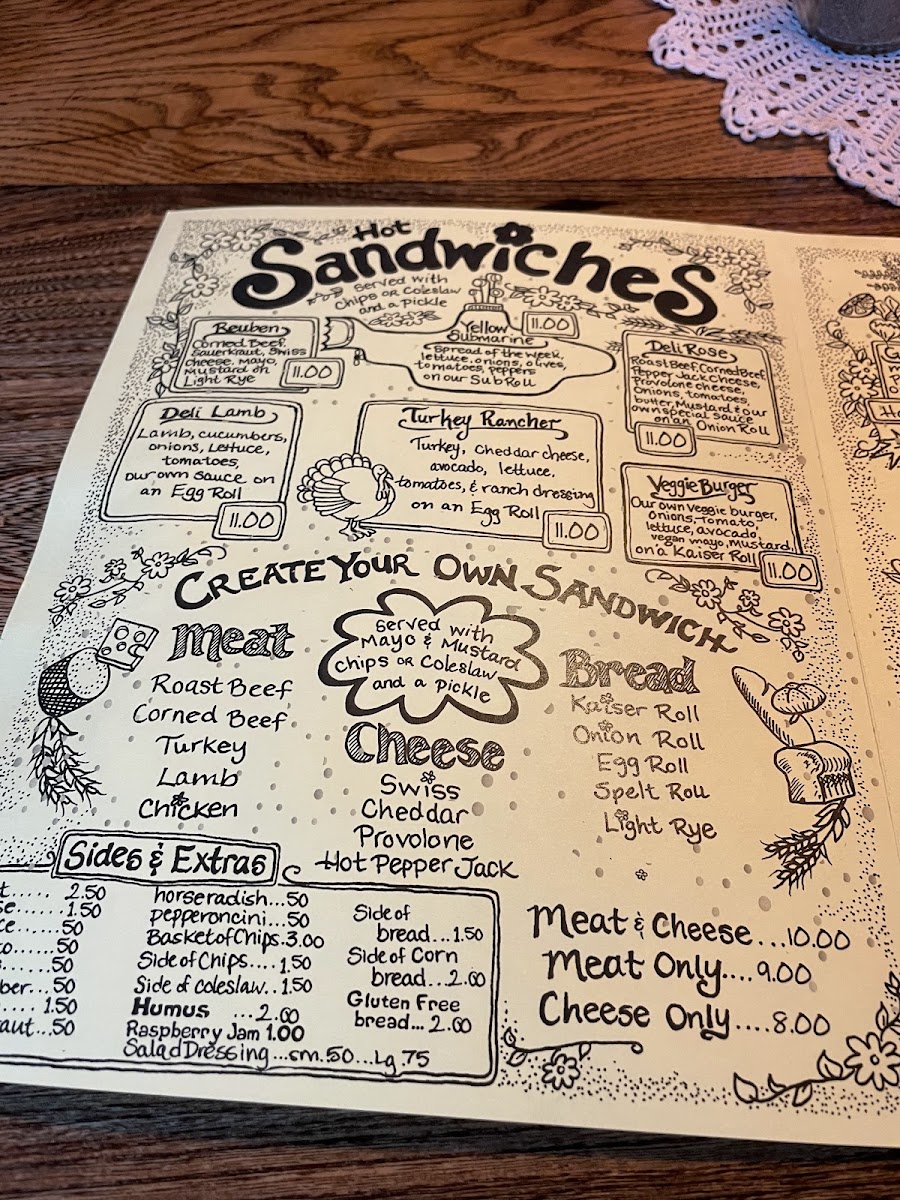 Hot
Sandwiches
served with
chips or Coleslaw
and a pickle
Reuben
Corned Beef,
Sauerkraut, Swiss
cheese, mayo,
mustard on
Light Rye
11.00
Yellow
Submarine
11.00
Spread of the week,
lettuce, onions, olives,
tomatoes, peppers
on our Sub Roll
Deli Rose
Roast Beef, Corned Beef
Pepper Jack Cheese,
Provolone cheese,
Onions, tomatoes,
butter, Mustard & our
own special sauce
on an Onion Roll
11.00
Deli Lamb
Lamb, cucumbers,
onions, Lettuce,
tomatoes,
our own Sauce on
an Egg Roll
11.00
Turkey Rancher
Turkey, cheddar cheese,
avocado, lettuce,
tomatoes, & ranch dressing
on an Egg Roll
11.00
Veggie Burger
Our own veggie burger,
onions, tomato,
lettuce, avocado,
vegan mayo, mustard
on a Kaiser Roll
11.00
Create Your Own Sandwich
served with
Mayo & Mustard
chips or Coleslaw
and a pickle
Meat
Roast Beef
Corned Beef
Turkey
Lamb
Chicken
Cheese
Swiss
Cheddar
Provolone
Hot Pepper Jack
Bread
Kaiser Roll
Onion Roll
Egg Roll
Spelt Roll
Light Rye
Sides & Extras
t...... 2.50
se......1.50
ce.....50
to.....50
s.....50
ber...50
.... 1.50
aut...50
horseradish...50
pepperoncini...50
Basket of Chips.3.00
Side of Chips....1.50
Side of coleslaw..1.50
Humus ...2.00
Raspberry Jam 1.00
Salad Dressing...sm.50...Lg.75
Side of
bread...1.50
Side of Corn
bread...2.00
Gluten Free
bread...2.00
Meat & Cheese...10.00
Meat Only....9.00
Cheese Only....8.00